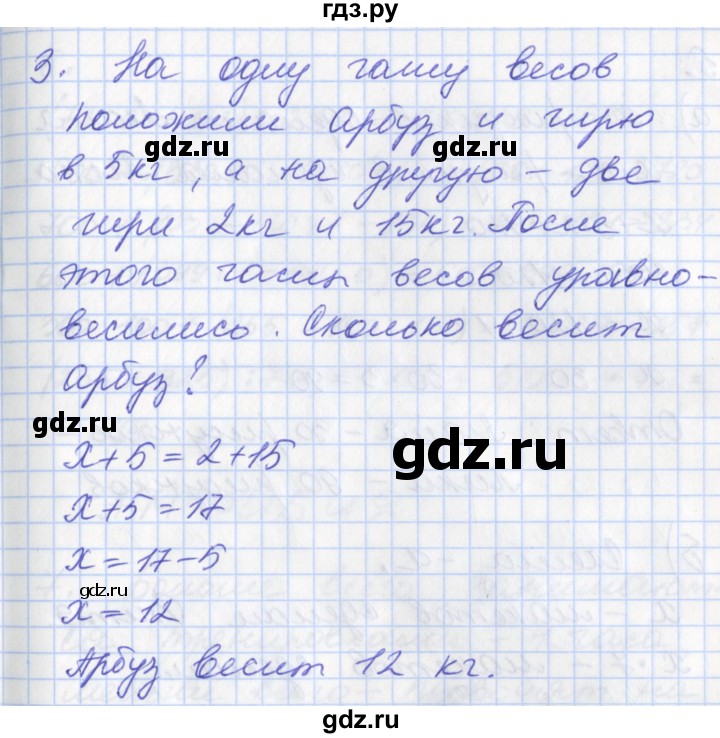 гдз.ру
3. На одну чашу весов
положили арбуз и гирю
gdz.ru
gdz.ru
в 5кг, а на другую – две
гири 2кг и 15кг. После
этого чаши весов уравно-
весились. Сколько весит
арбуз?
gdz.ru
x + 5 = 2 + 15
gdz.ru
x + 5 = 17
x = 17 - 5
gdz.ru
x = 12
Арбуз весит 12 кг.
gdz.ru